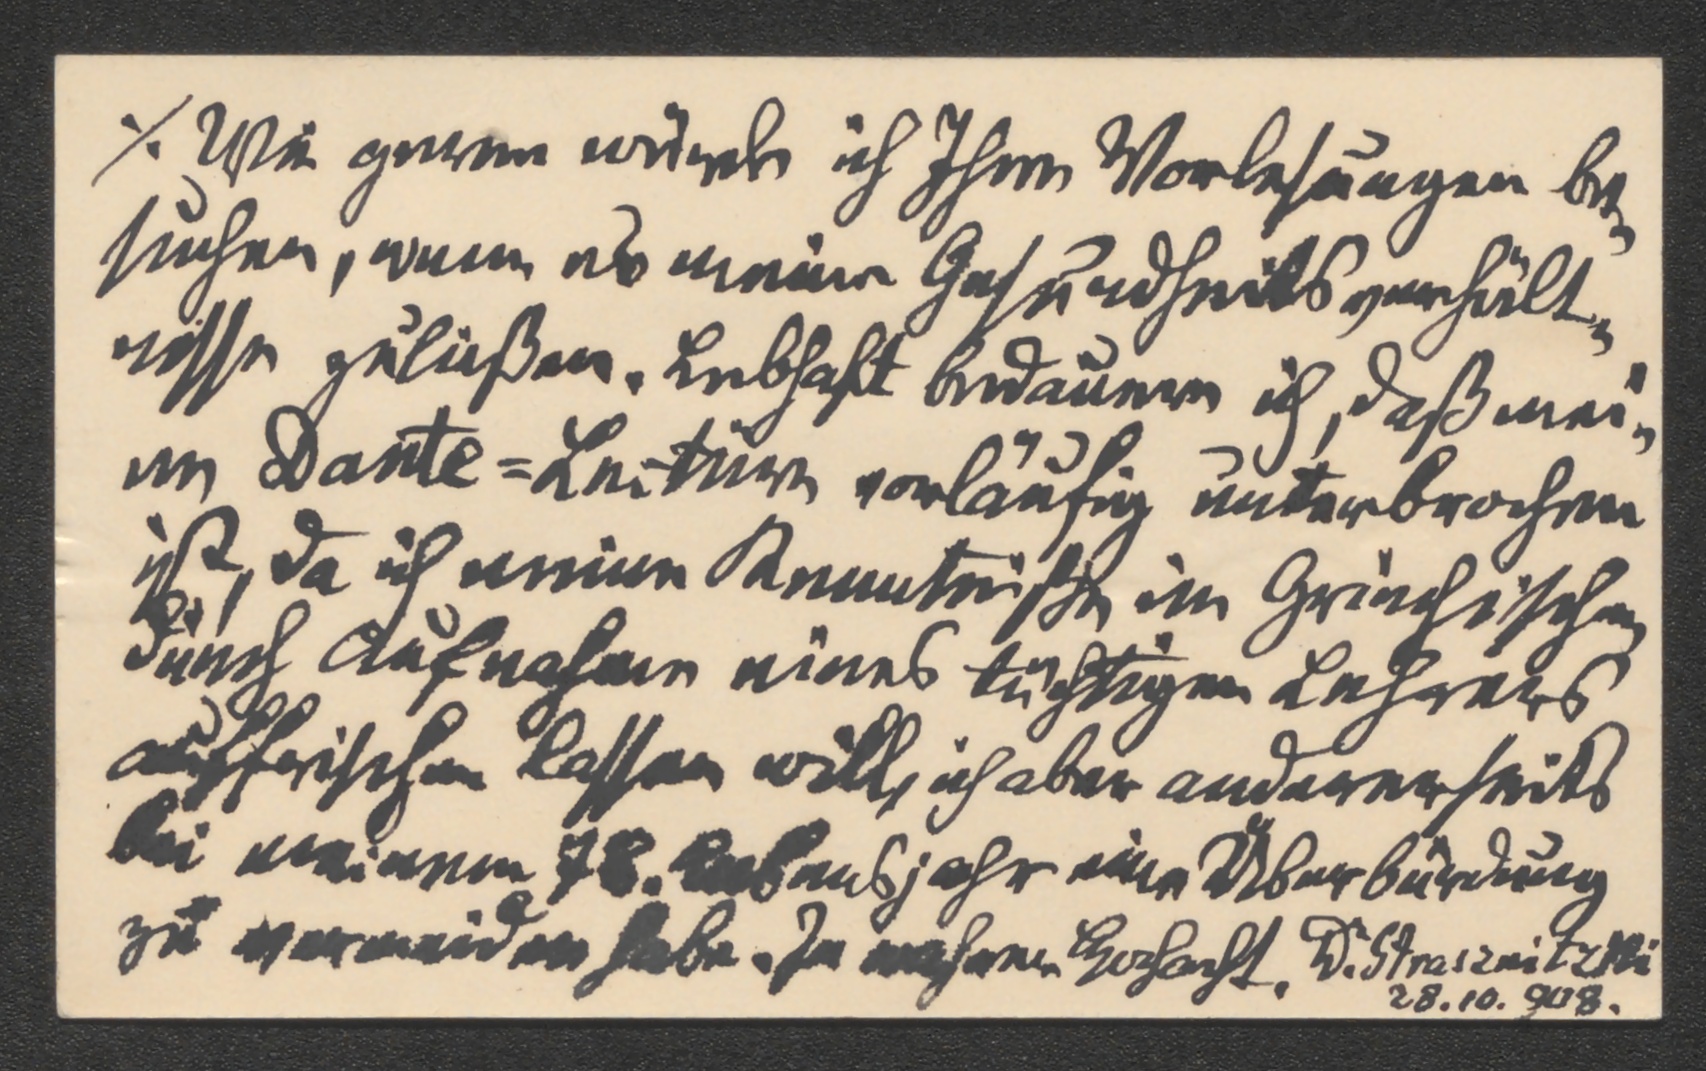 ⁒ Wie gerne würde ich Ihre Vorlesungen be-
suchen, wenn es meine Gesundheitsverhält-
nisse zuließen. Lebhaft bedauere ich, daß mei-
ne Dante=Lectüre vorläufig unterbrochen
ist, da ich meine Kenntniße im Griechischen
durch Aufnahme eines tüchtigen Lehrers
auffrischen lassen will, ich aber andererseits
bei meinem 78. Lebensjahr eine Überbürdung
zu vermeiden habe. In wahrer Hochacht. Dr. Strasznitzki
28.10.908.